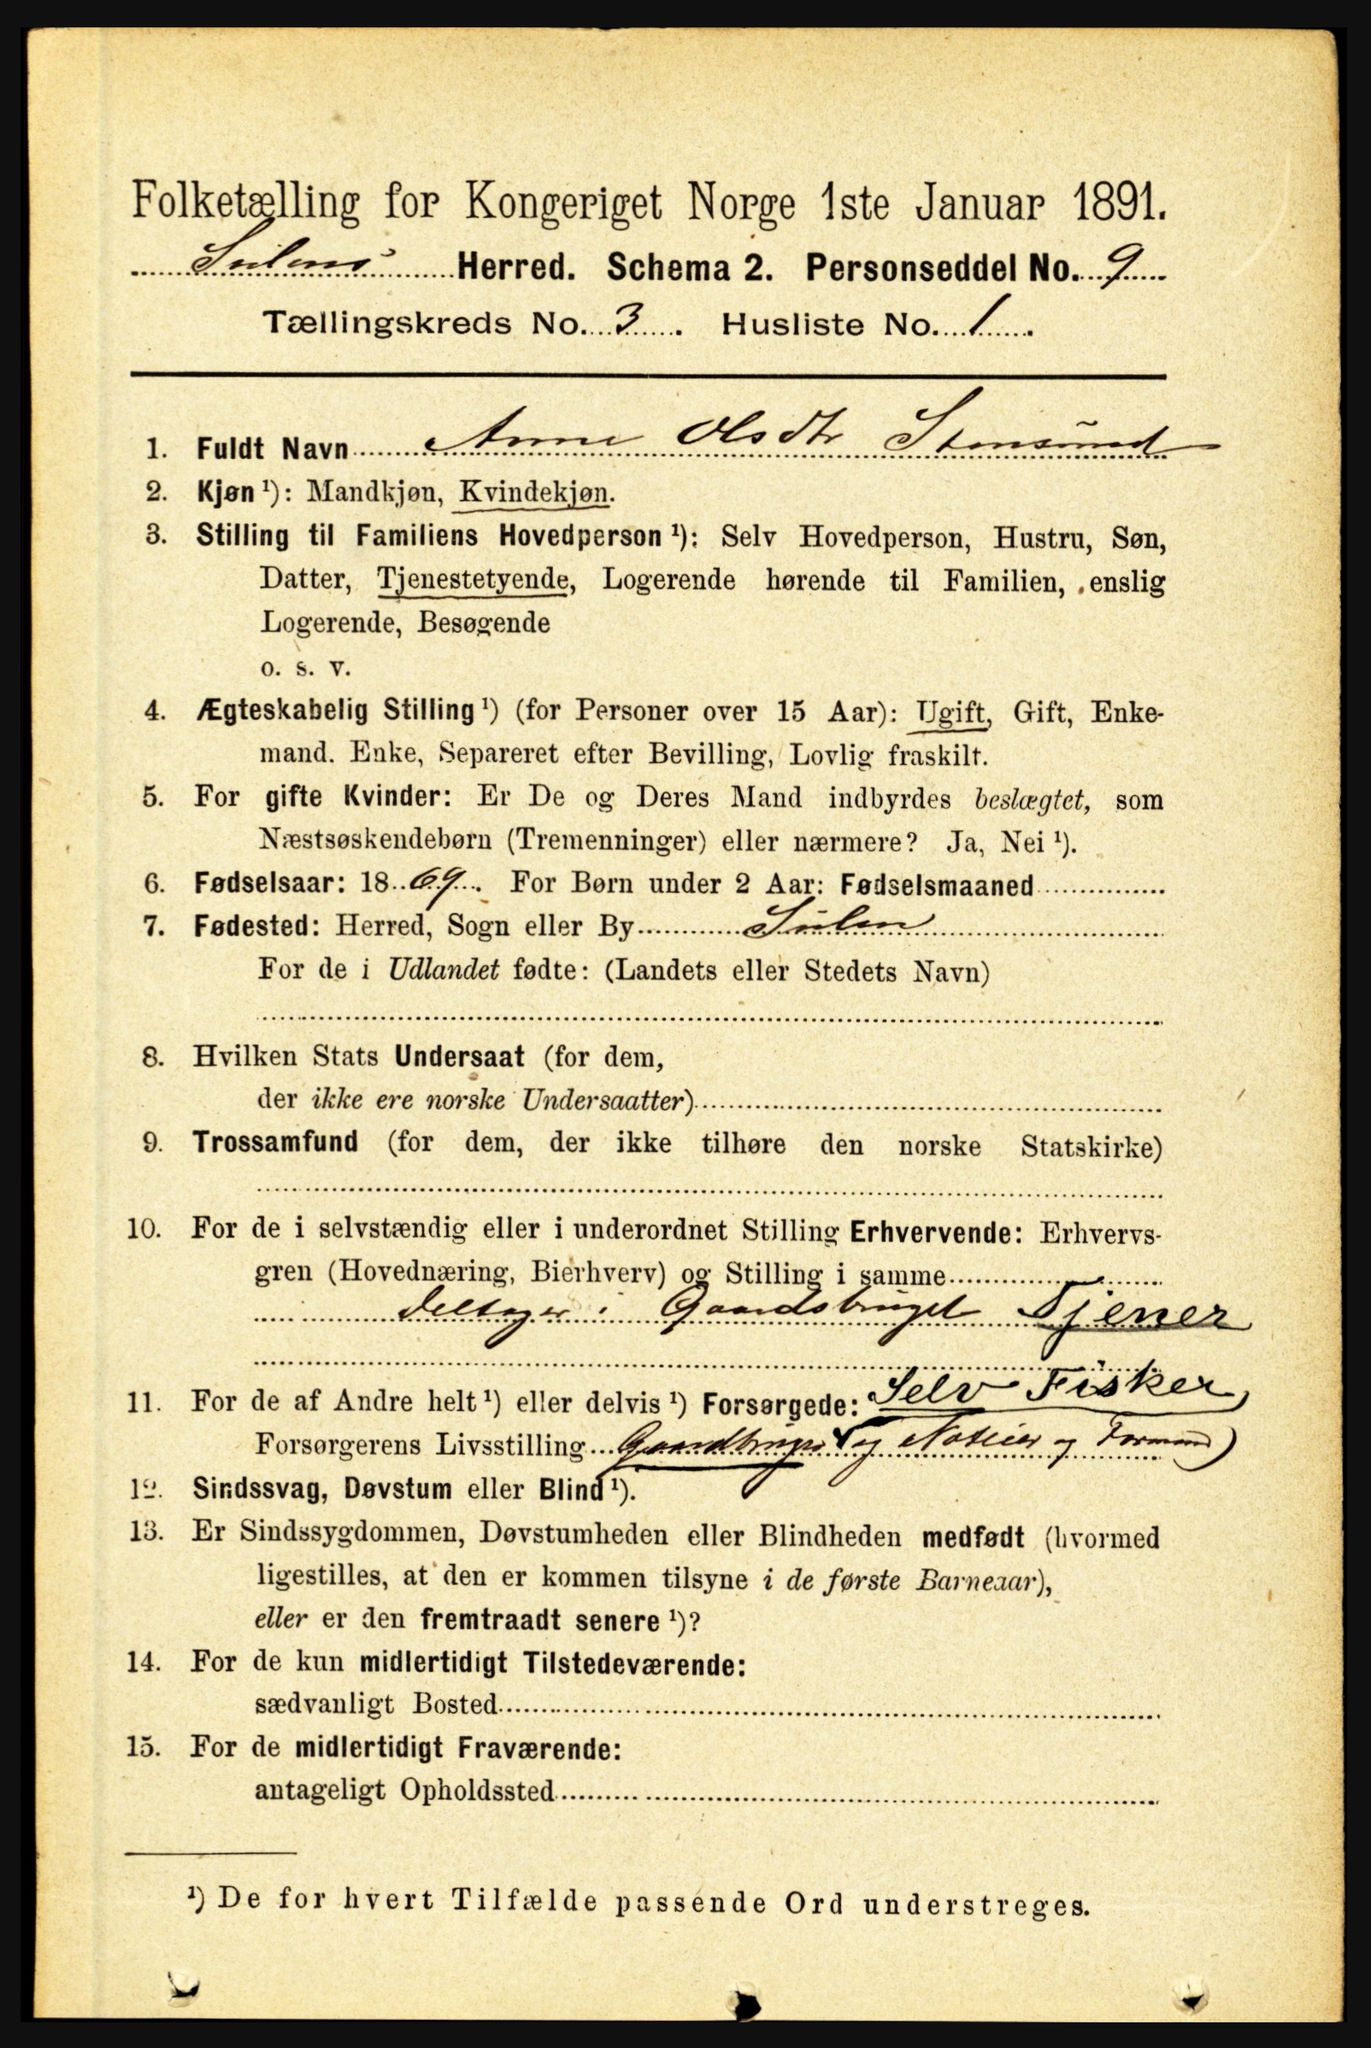 Folketælling for Kongeriget Norge 1ste Januar 1891.
Sulens Herred. Schema 2. Personseddel No. 9
Tællingskreds No. 3. Husliste No. 1.
1. Fuldt Navn Anne Olsdtr Stensund
2. Kjøn ¹): Mandkjøn, Kvindekjøn.
3. Stilling til Familiens Hovedperson ¹): Selv Hovedperson, Hustru, Søn,
Datter, Tjenestetyende, Logerende hørende til Familien, enslig
Logerende, Besøgende
o. s. v.
4. Ægteskabelig Stilling ¹) (for Personer over 15 Aar): Ugift, Gift, Enke-
mand. Enke, Separeret efter Bevilling, Lovlig fraskilt.
5. For gifte Kvinder: Er De og Deres Mand indbyrdes beslægtet, som
Næstsøskendebørn (Tremenninger) eller nærmere? Ja, Nei ¹).
6. Fødselsaar: 1869. For Børn under 2 Aar: Fødselsmaaned
7. Fødested: Herred, Sogn eller By Sulen
For de i Udlandet fødte: (Landets eller Stedets Navn)
8. Hvilken Stats Undersaat (for dem,
der ikke ere norske Undersaatter)
9. Trossamfund (for dem, der ikke tilhøre den norske Statskirke)
10. For de i selvstændig eller i underordnet Stilling Erhvervende: Erhvervs-
gren (Hovednæring, Bierhverv) og Stilling i samme
deltager i Gaardsbruget Tjener
11. For de af Andre helt ¹) eller delvis ¹) Forsørgede: Selv Fisker,
Forsørgerens Livsstilling Gaardbruger og og
12. Sindssvag, Døvstum eller Blind ¹).
13. Er Sindssygdommen, Døvstumheden eller Blindheden medfødt (hvormed
ligestilles, at den er kommen tilsyne i de første Barneaar),
eller er den fremtraadt senere ¹)?
14. For de kun midlertidigt Tilstedeværende:
sædvanligt Bosted
15. For de midlertidigt Fraværende:
antageligt Opholdssted
¹) De for hvert Tilfælde passende Ord understreges.